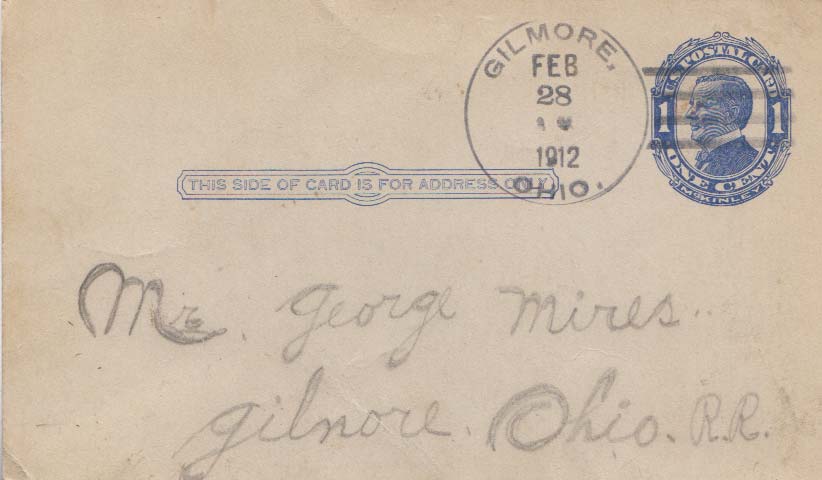 GILMORE,
FEB
28
A M
1912
OHIO.
U.S. POSTAL CARD
1 1
ONE CENT
McKINLEY
THIS SIDE OF CARD IS FOR ADDRESS ONLY
Mr. George Mires.
Gilnore. Ohio. R.R.